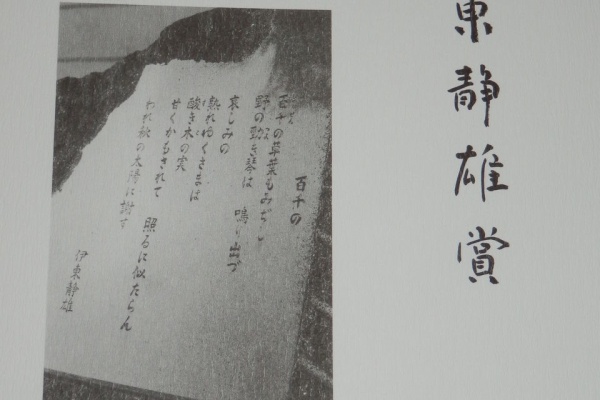 東静雄賞
百千の
百千の草葉もみぢし
野の勁き琴は 鳴り出づ
哀しみの
熟れゆくさまは
酸き木の実
甘くかもされて 照るに似たらん
われ秋の太陽に謝す
伊東静雄